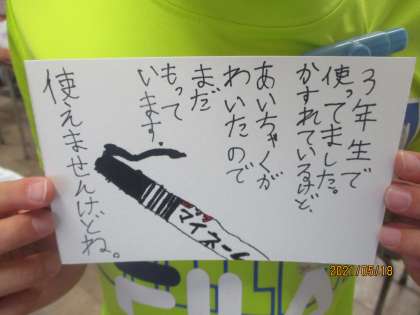 3年生で
使ってました。
かすれているけど、
あいちゃくが
わいたので
まだ
もって
います。
使えませんけどね。
マイネーム
2021/05/18